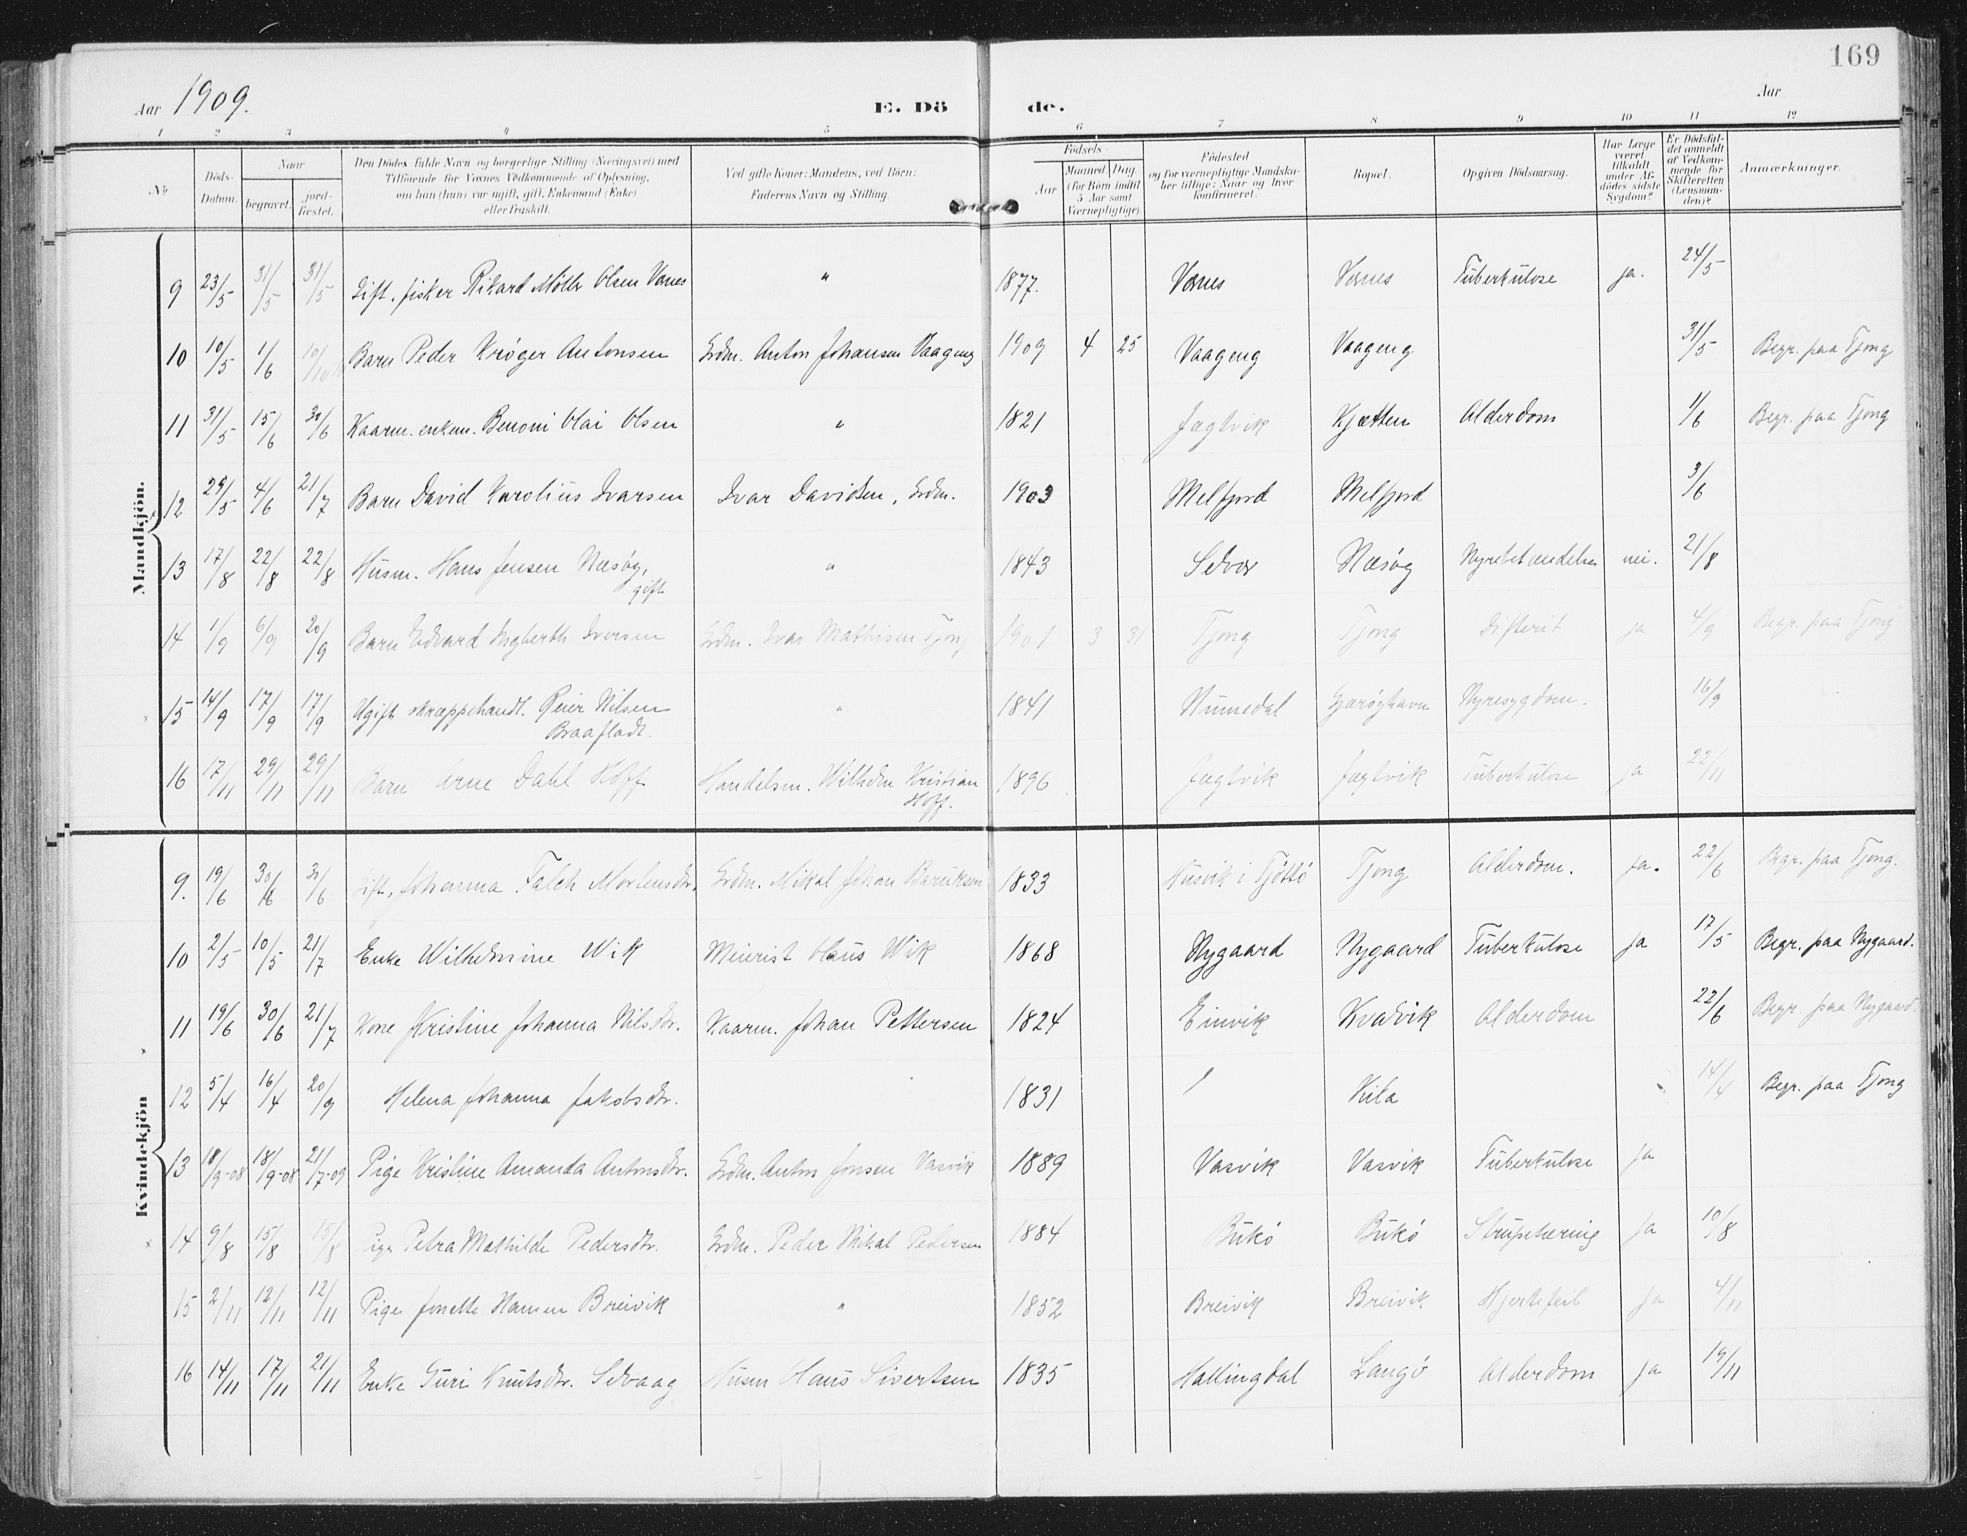 169
Aar 1909. E. Dö de. Aar
1 2 3 4 5 6 7 8 9 10 11 12
No Döds-Datum. Naar begravet. jordfæstet. Den Dödes fulde Navn og borgerlige Stilling (Næringsvei) med Tilföiende for Voxnes Vedkommende af Oplysning, om han (hun) var ugift, gift, Enkemand (Enke) eller fraskilt. Ved gifte Koner: Mandens, ved Börn: Faderens Navn og Stilling. Födsels Aar Maaned Dag (for Börn indtil 5 Aar samt Værnepligtige). Födested og for værnepligtige Mandskaber tillige: Naar og hvor konfirmeret. Bopæl. Opgiven Dödsaarsag. Har Læge været tilkaldt under Afdödes sidste Sygdom? Er Dödsfaldet anmeldt af Vedkommende for Skifteretten (Lensmanden)? Anmærkninger.
Mandkjön.
9 23/5 31/5 31/5 Gift, fisker Rikard Møller Olsen Værnes " 1877. Værnes Værnes Tuberkulose ja. 24/5
10 10/5 1/6 10/10 Barn Peder Krøger Antonsen Grdm. Anton Johansen Vaageng 1909 4 25 Vaageng Vaageng 31/5 Begr. paa Tjong
11 31/5 15/6 30/6 Kaarm. enkem. Benoni Olai Olsen " 1821 Jægtvik Kjætten Alderdom 1/6 Begr. paa Tjong
12 29/5 4/6 21/7 Barn David Karolius Ivarsen Ivar Davidsen, Grdm. 1903 Melfjord Melfjord 3/6
13 17/8 22/8 22/8 Husm. Hans Jensen Næsøy, gift " 1843 Selvær Næsøy Nyrebetændelse nei. 21/8
14 1/9 6/9 20/9 Barn Edvard Ingberth Iversen Grdm. Ivar Mathisen Tjong 1901 3 31 Tjong Tjong Difterit ja 4/9 Begr. paa Tjong
15 14/9 17/9 17/9 Ugift skræppehandl. Reier Nilsen Braafladt. " 1841 Numedal Gjærøyhavn Nyresygdom. 16/9
16 17/11 29/11 29/11 Barn Arne Dahl Hoff Handelsm. Wilhelm Kristian Hoff. 1896 Jægtvik Jægtvik Tuberkulose ja 22/11
Kvindekjön
9. 19/6 30/6 30/6 Gift, Johanna Falch Mortensdtr. Grdm. Mikal Johan Baruksen 1833 Husvik i Tjøttø Tjong Alderdom. Ja. 22/6 Begr. paa Tjong.
10 2/5 10/5 21/7 Enke Wilhelmine Wik Meierist Olaus Wik 1868 Nygaard Nygaard Tuberkulose ja 17/5 Begr. paa Nygaard.
11 19/6 30/6 21/7 Kone Kristine Johanna Nilsdtr. Kaarm. Johan Pettersen 1824 Einvik Kvalvik Alderdom 22/6 Begr. paa Nygaard.
12 5/4 16/4 20/9 Helena Johanna Jakobsdtr. 1831 Kila 14/4 Begr. paa Tjong
13 18/9-08 18/9-08 21/7-09 Pige Kristine Amanda Antonsdtr. Grdm. Anton Jensen Vasvik 1889 Vasvik Vasvik Tuberkulose Ja
14 9/8 15/8 15/8 Pige Petra Mathilde Pedersdtr. Grdm. Peder Mikal Pedersen 1884 Bukø Bukø Strupetæring Ja 10/8
15 2/11 12/11 12/11 Pige Jonette Hansen Breivik " 1852 Breivik Breivik Hjertefeil Ja 4/11
16 14/11 17/11 21/11 Enke Guri Knutsdtr. Selvaag Husm Hans Sivertsen 1835 Hallingdal Langø Alderdom ja 19/11